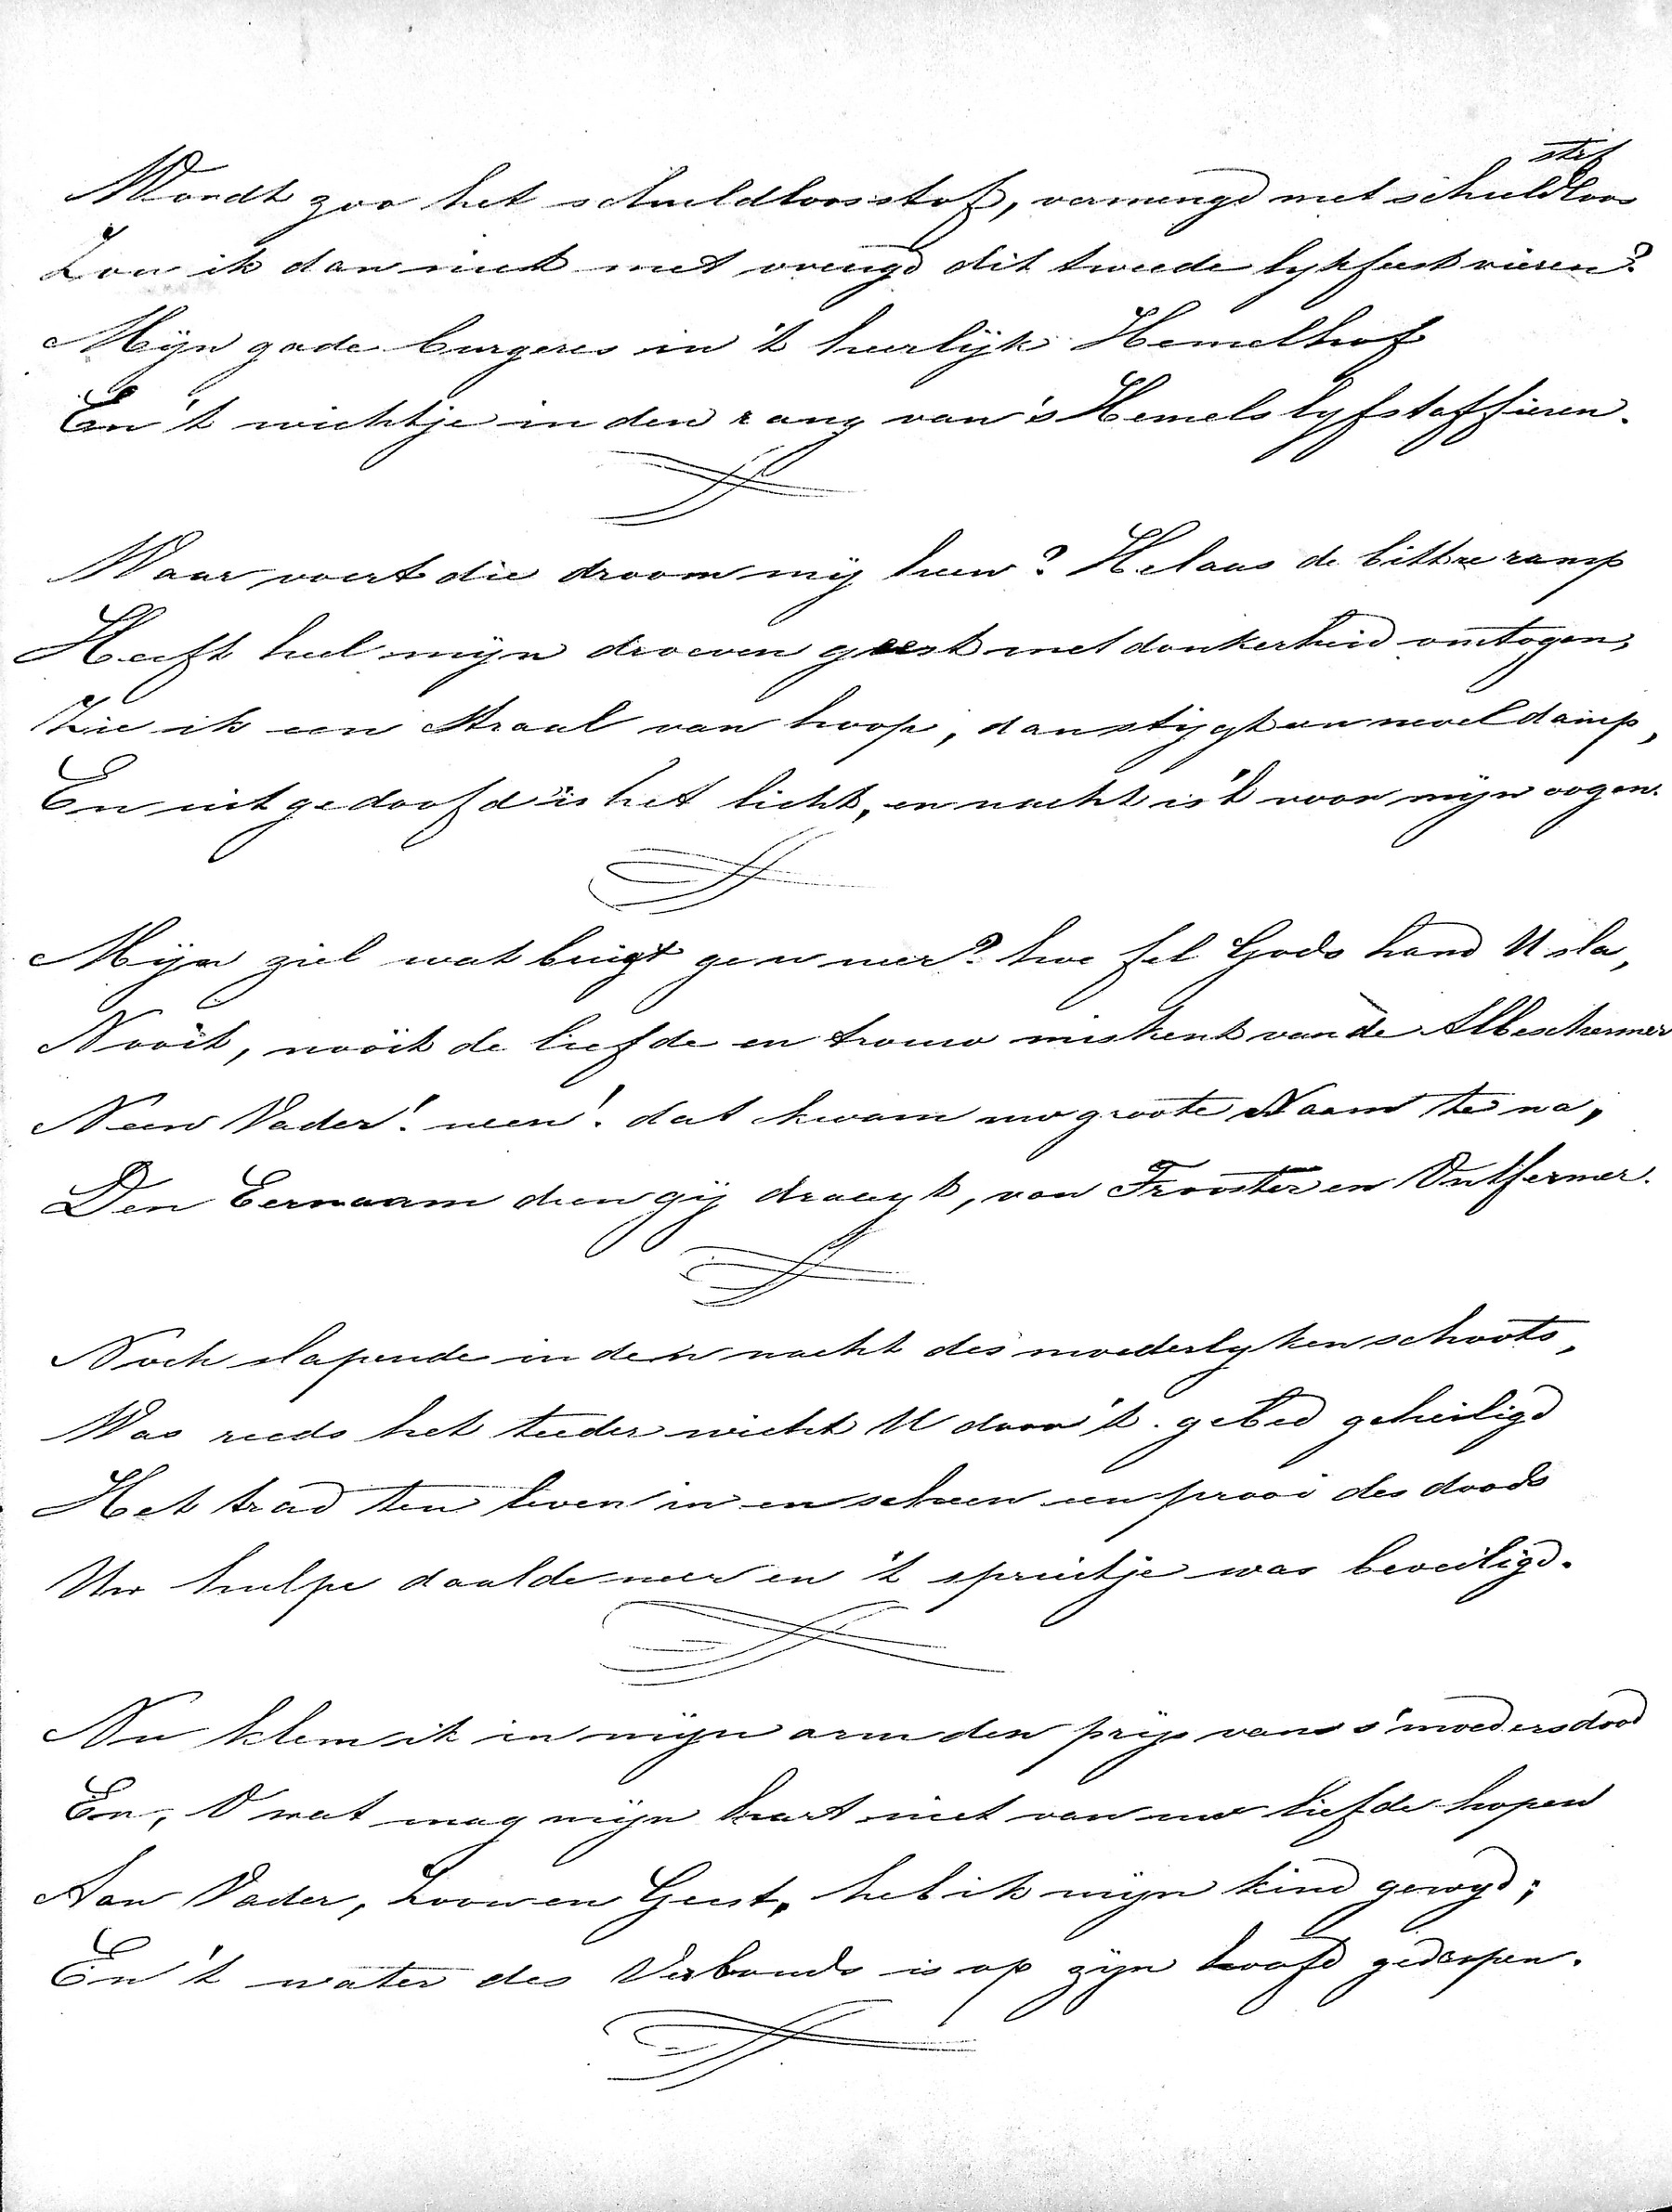 Wordt zoo het schuldloos stof, vermengd met schuldloos stof
Zou ik dan niet met vreugd dit tweede lykfeest vieren?
Mijn gade burgeres in 't heerlijk Hemelhof
En 't wichtje in den rang van 's Hemels lyfstaffieren.
Waar voert die droom mij heen? Helaas de bittre ramp
Heeft heel mijn droeven geest met donkerheid omtogen,
Zie ik een straal van hoop, dan stygt een neveldamp,
En uitgedoofd is het licht, en nacht is 't voor mijn oogen.
Mijn ziel wat buigt ge u neer? hoe fel Gods hand U sla,
Nooit, nooit de liefde en trouw miskent van de Albeschermer
Neen Vader! neen! dat kwam uw groote Naam te na,
Den Eernaam dien gij draagt, van Trooster en Ontfermer.
Noch slapende in den nacht des moederlyken schoots,
Was reeds het teeder wicht U door 't gebed geheiligd
Het trad ten leven in en scheen een prooi des doods
Uw hulpe daalde neer en 't spruitje was beveiligd.
Nu klem ik in mijn arm den prijs van s' moeders dood
En, O wat mag mijn hart niet van uw liefde hopen
Aan Vader, Zoon en Geest, heb ik mijn kind gewyd;
En 't water des Verbonds is op zijn hoofd gedropen.